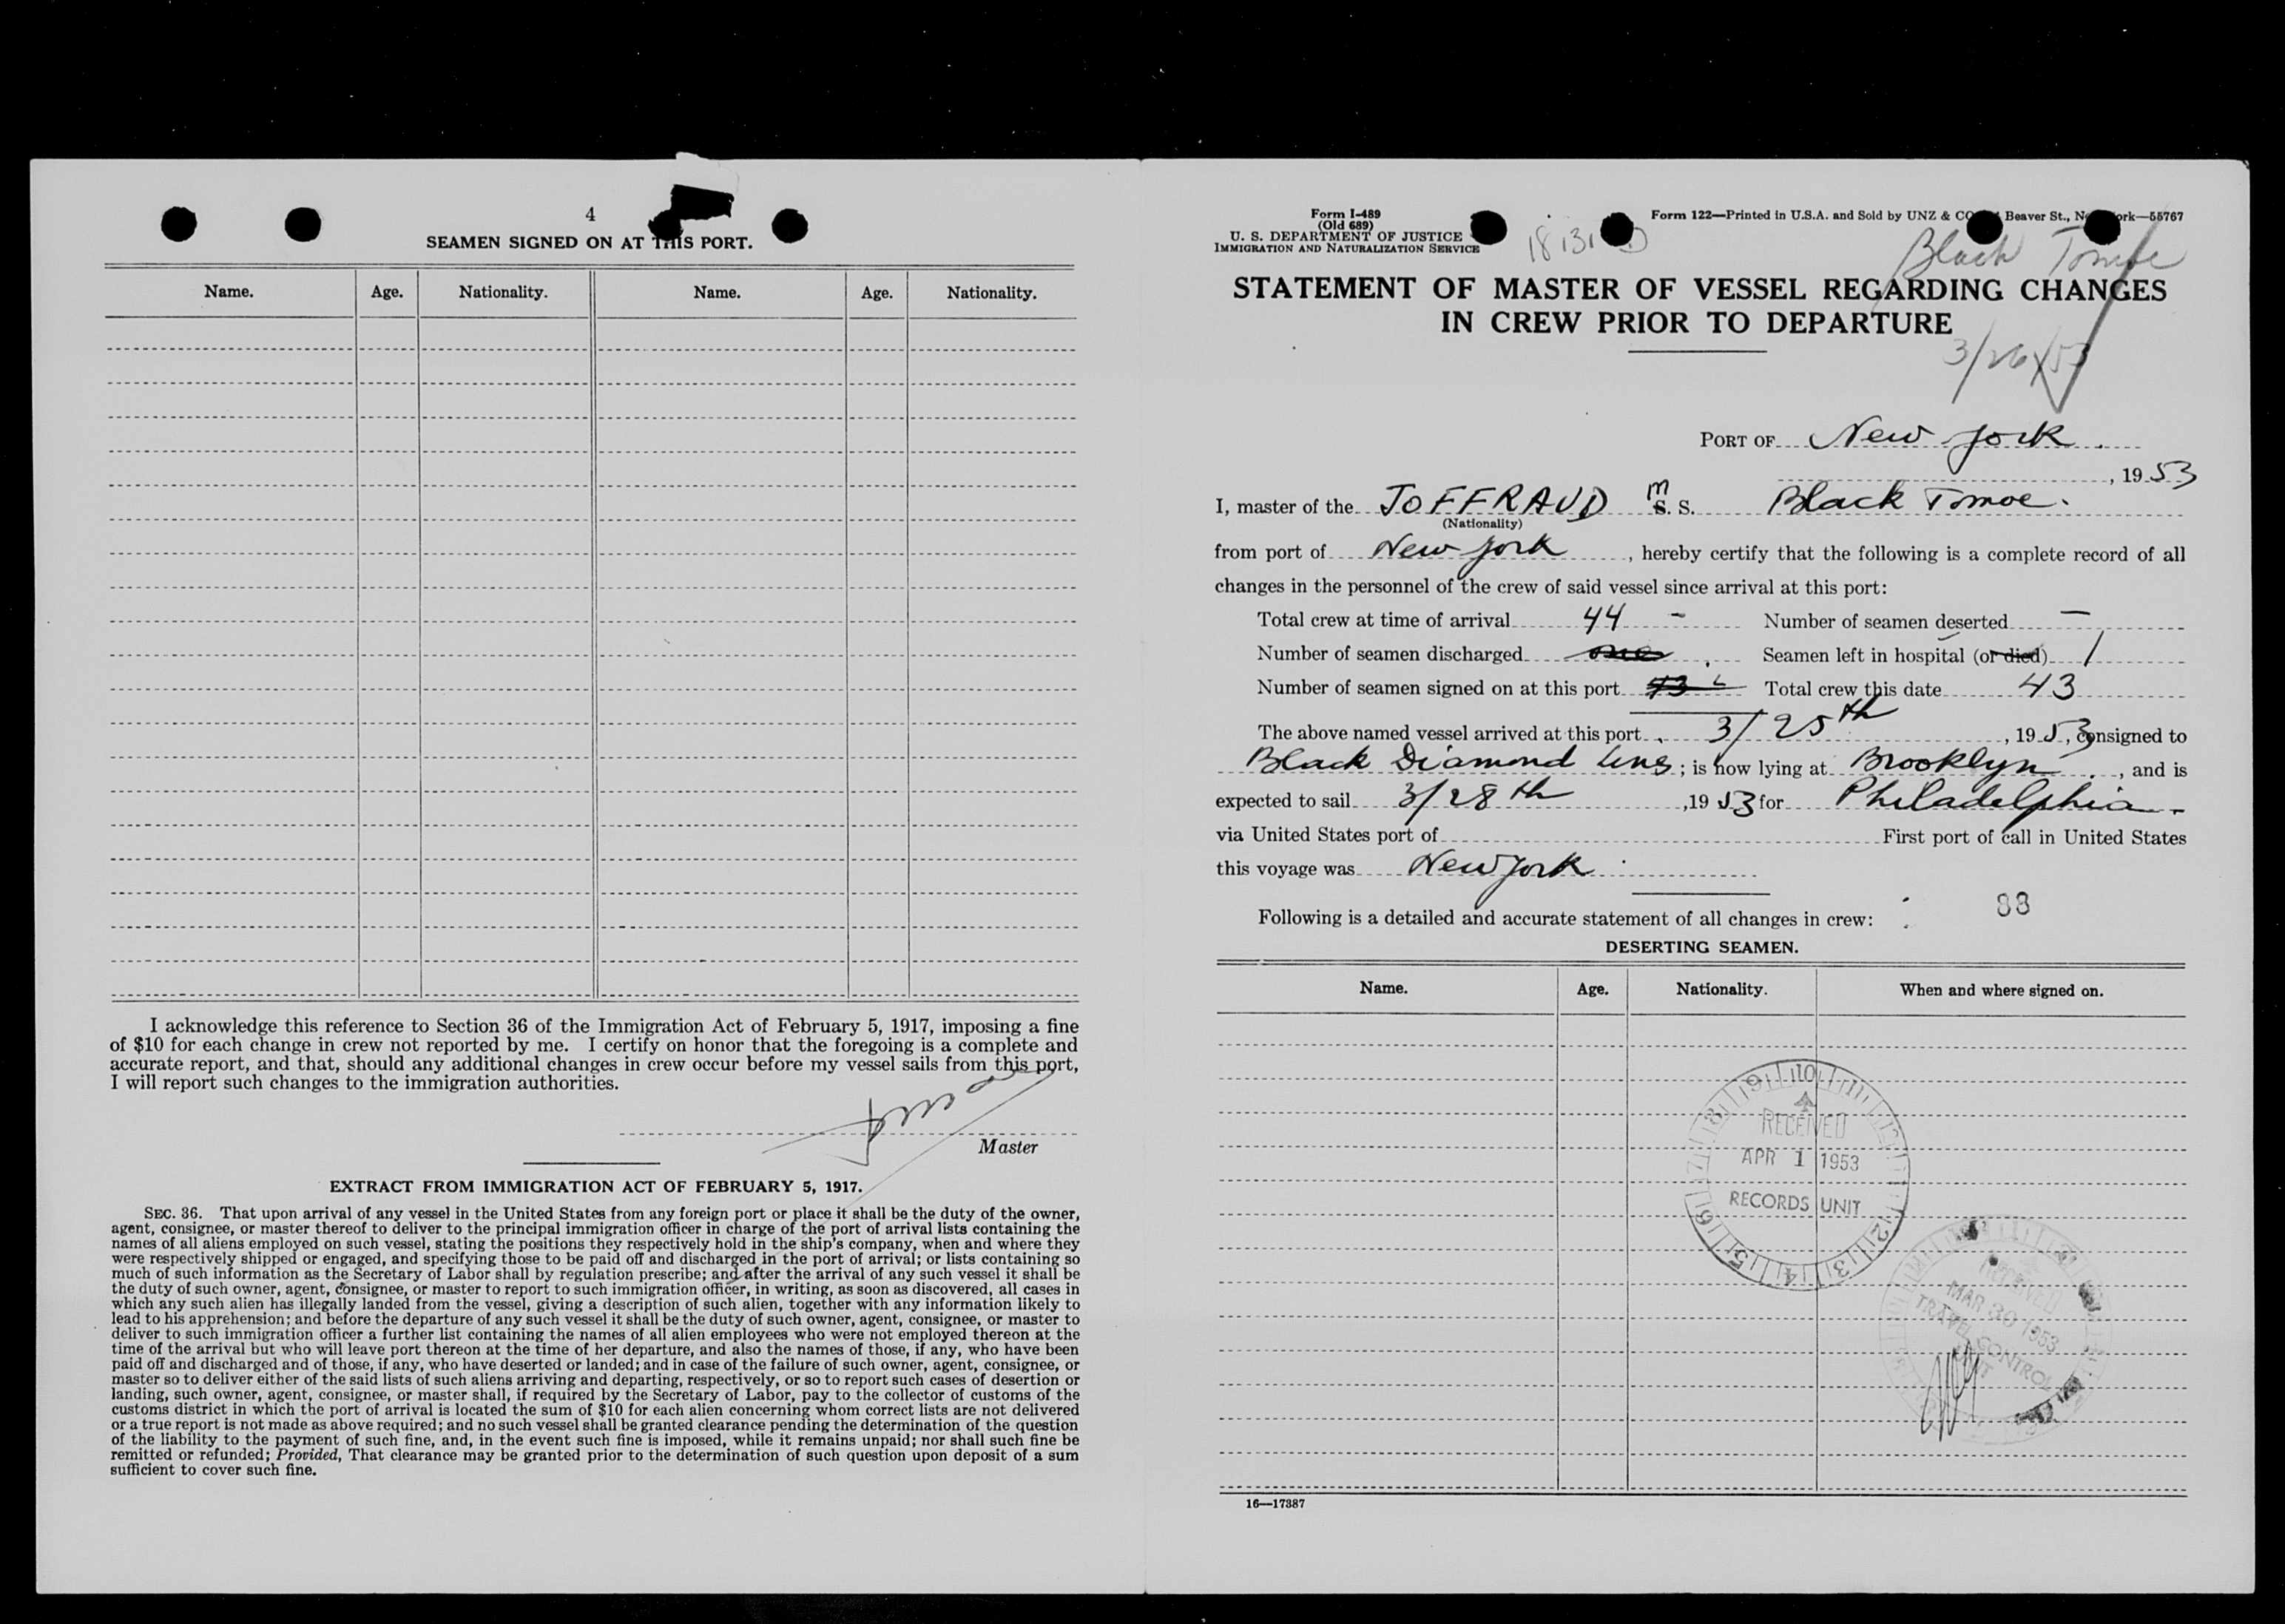 4
SEAMEN SIGNED ON AT THIS PORT.
Name. Age. Nationality. Name. Age. Nationality.
I acknowledge this reference to Section 36 of the Immigration Act of February 5, 1917, imposing a fine
of $10 for each change in crew not reported by me. I certify on honor that the foregoing is a complete and
accurate report, and that, should any additional changes in crew occur before my vessel sails from this port,
I will report such changes to the immigration authorities.
Master
EXTRACT FROM IMMIGRATION ACT OF FEBRUARY 5, 1917.
SEC. 36. That upon arrival of any vessel in the United States from any foreign port or place it shall be the duty of the owner,
agent, consignee, or master thereof to deliver to the principal immigration officer in charge of the port of arrival lists containing the
names of all aliens employed on such vessel, stating the positions they respectively hold in the ship's company, when and where they
were respectively shipped or engaged, and specifying those to be paid off and discharged in the port of arrival; or lists containing so
much of such information as the Secretary of Labor shall by regulation prescribe; and after the arrival of any such vessel it shall be
the duty of such owner, agent, consignee, or master to report to such immigration officer, in writing, as soon as discovered, all cases in
which any such alien has illegally landed from the vessel, giving a description of such alien, together with any information likely to
lead to his apprehension; and before the departure of any such vessel it shall be the duty of such owner, agent, consignee, or master to
deliver to such immigration officer a further list containing the names of all alien employees who were not employed thereon at the
time of the arrival but who will leave port thereon at the time of her departure, and also the names of those, if any, who have been
paid off and discharged and of those, if any, who have deserted or landed; and in case of the failure of such owner, agent, consignee, or
master so to deliver either of the said lists of such aliens arriving and departing, respectively, or so to report such cases of desertion or
landing, such owner, agent, consignee, or master shall, if required by the Secretary of Labor, pay to the collector of customs of the
customs district in which the port of arrival is located the sum of $10 for each alien concerning whom correct lists are not delivered
or a true report is not made as above required; and no such vessel shall be granted clearance pending the determination of the question
of the liability to the payment of such fine, and, in the event such fine is imposed, while it remains unpaid; nor shall such fine be
remitted or refunded; Provided, That clearance may be granted prior to the determination of such question upon deposit of a sum
sufficient to cover such fine.
Form I-489
(Old 689)
U. S. DEPARTMENT OF JUSTICE
IMMIGRATION AND NATURALIZATION SERVICE
Form 122—Printed in U.S.A. and Sold by UNZ & CO Beaver St., New York—55767
Black Tomoe
STATEMENT OF MASTER OF VESSEL REGARDING CHANGES
IN CREW PRIOR TO DEPARTURE
3/26/53
PORT OF New York.
, 1953
I, master of the JOFFRAUD M S. S. Black Tomoe.
(Nationality)
from port of New York, hereby certify that the following is a complete record of all
changes in the personnel of the crew of said vessel since arrival at this port:
Total crew at time of arrival 44 - Number of seamen deserted —
Number of seamen discharged one Seamen left in hospital (or died) 1
Number of seamen signed on at this port 43 Total crew this date 43
The above named vessel arrived at this port 3/25th, 1953, consigned to
Black Diamond Lines; is now lying at Brooklyn, and is
expected to sail 3/28th, 1953 for Philadelphia.
via United States port of First port of call in United States
this voyage was New York
88
Following is a detailed and accurate statement of all changes in crew:
DESERTING SEAMEN.
Name. Age. Nationality. When and where signed on.
RECEIVED
APR 1 1953
RECORDS UNIT
RECEIVED
MAR 30 1953
TRAVEL CONTROL
UNIT
16—17387